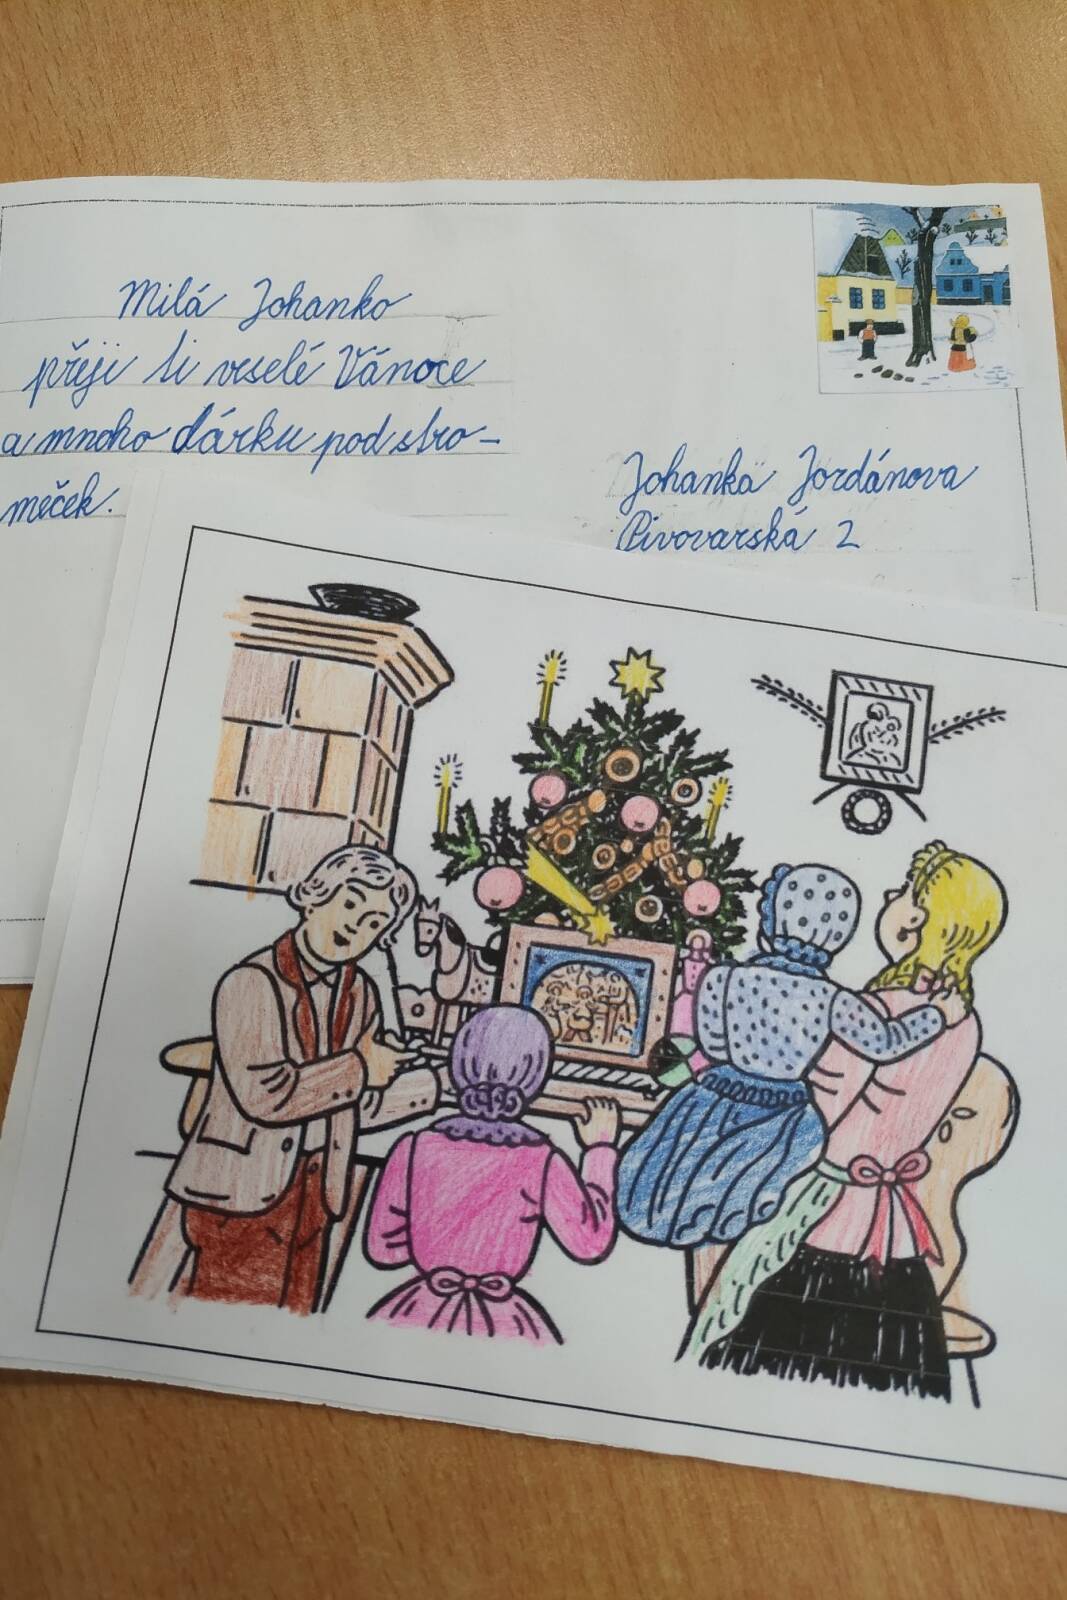 Milá Johanko
přeji ti veselé Vánoce
a mnoho dárku pod stro-
meček.
Johanka Jordánova
Pivovarská 2